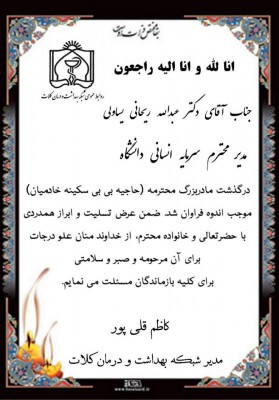 انا لله و انا الیه راجعون
روابط عمومی شبکه بهداشت و درمان کلات
جناب آقای دکتر عبدالله ریحانی یساولی
مدیر محترم سرمایه انسانی دانشگاه
درگذشت مادربزرگ محترمه (حاجیه بی بی سکینه خادمیان)
موجب اندوه فراوان شد. ضمن عرض تسلیت و ابراز همدردی
با حضرتعالی و خانواده محترم، از خداوند منان علو درجات
برای آن مرحومه و صبر و سلامتی
برای کلیه بازماندگان مسئلت می نمایم.
کاظم قلی پور
مدیر شبکه بهداشت و درمان کلات